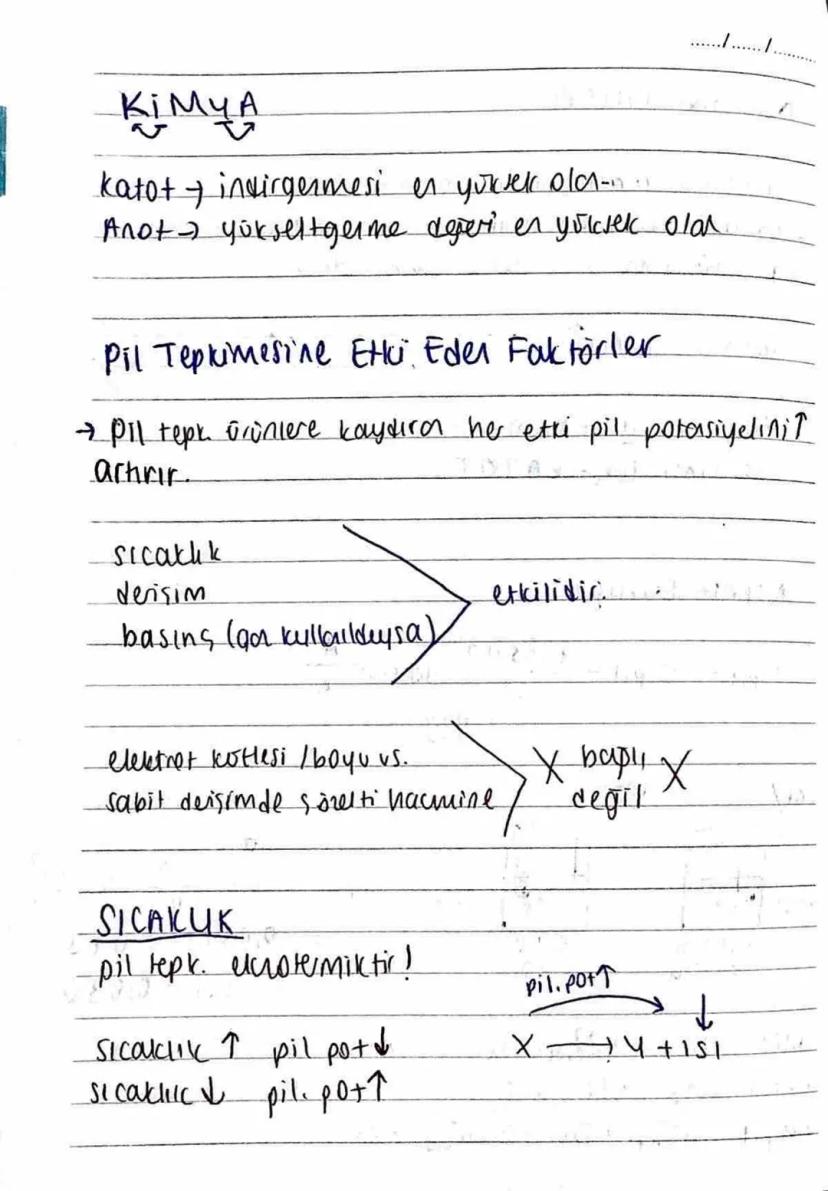 ....../....../.........
KİMYA
Katot → indirgenmesi en yüksek olan
Anot → yükseltgenme değeri en yüksek olan
Pil Tepkimesine Etki Eden Faktörler
→ Pil tepk. ürünlere kaydıran her etki pil potansiyelini ↑
artırır.
sıcaklık
derişim
basınç (gaz kullanıldıysa)
etkilidir.
elektrot kütlesi / boyu vs.
sabit derişimde çözelti hacmine
X bağlı X
değil
SICAKLIK
pil tepk. ekzotermiktir!
pil. pot ↑
sıcaklık ↑ pil pot ↓
X → Y + ısı ↓
sıcaklık ↓ pil. pot ↑